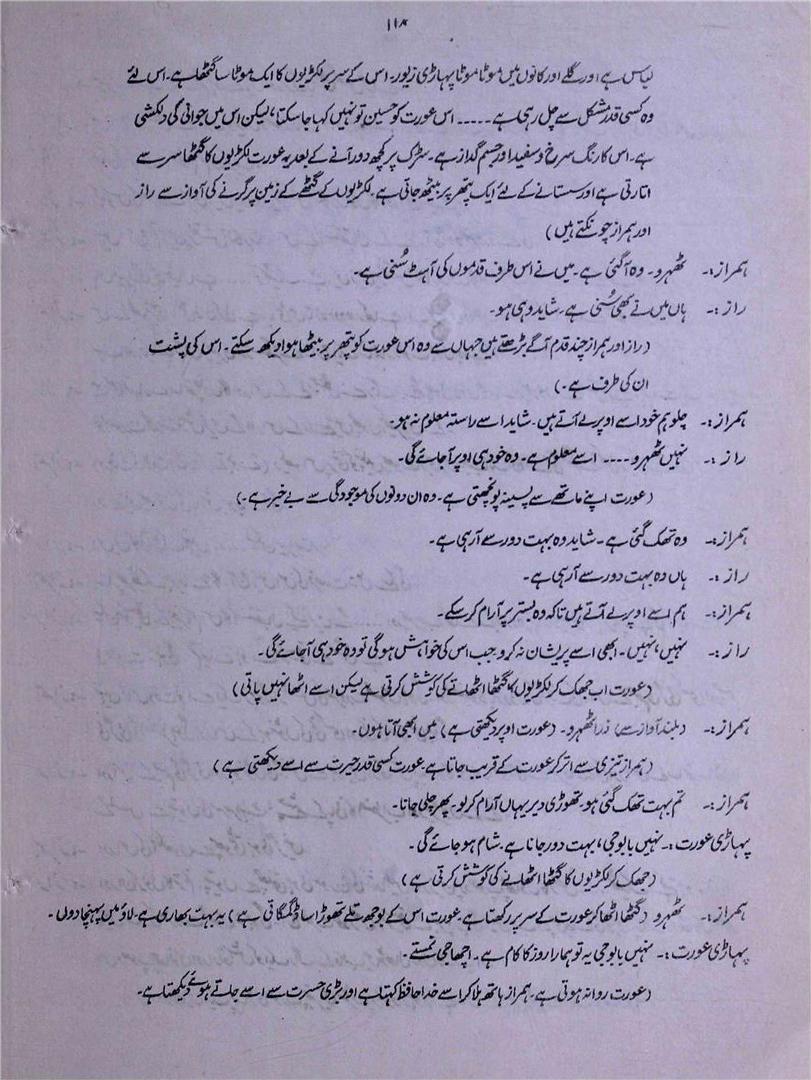 ۱۱۸
لباس ہے اور گلے اور کانوں میں موٹا موٹا پہاڑی زیور۔ اس کے سر پر لکڑیوں کا ایک موٹا سا گٹھا ہے۔ اس لئے
وہ کسی قدر مشکل سے چل رہی ہے ----- اس عورت کو حسین تو نہیں کہا جا سکتا، لیکن اس میں جوانی کی دلکشی
ہے۔ اس کا رنگ سرخ و سفید اور جسم گداز ہے۔ سڑک پر کچھ دور آنے کے بعد یہ عورت لکڑیوں کا گٹھا سر سے
اتارتی ہے اور سستانے کے لئے ایک پتھر پر بیٹھ جاتی ہے۔ لکڑیوں کے گٹھے کے زمین پر گرنے کی آواز سے راز
اور ہمراز چونکتے ہیں)
ہمراز:۔ ٹھہرو۔ وہ آ گئی ہے۔ میں نے اس طرف قدموں کی آہٹ سُنی ہے۔
راز:۔ ہاں میں نے بھی سُنی ہے۔ شاید وہی ہو۔
(راز اور ہمراز چند قدم آگے بڑھتے ہیں جہاں سے وہ اس عورت کو پتھر پر بیٹھا ہوا دیکھ سکتے۔ اس کی پشت
ان کی طرف ہے۔)
ہمراز:۔ چلو ہم خود اسے اوپر لے آتے ہیں۔ شاید اسے راستہ معلوم نہ ہو۔
راز:۔ نہیں ٹھہرو ---- اسے معلوم ہے۔ وہ خود ہی اوپر آ جائے گی۔
(عورت اپنے ماتھے سے پسینہ پونچھتی ہے۔ وہ ان دونوں کی موجودگی سے بے خبر ہے۔)
ہمراز:۔ وہ تھک گئی ہے۔ شاید وہ بہت دور سے آ رہی ہے۔
راز:۔ ہاں وہ بہت دور سے آ رہی ہے۔
ہمراز:۔ ہم اسے اوپر لے آتے ہیں تاکہ وہ بستر پر آرام کر سکے۔
راز:۔ نہیں، نہیں۔ ابھی اسے پریشان نہ کرو۔ جب اس کی خواہش ہو گی تو وہ خود ہی آ جائے گی۔
(عورت اب جھک کر لکڑیوں کا گٹھا اٹھانے کی کوشش کرتی ہے لیکن اسے اٹھا نہیں پاتی)
ہمراز:۔ (بلند آواز سے) ذرا ٹھہرو۔ (عورت اوپر دیکھتی ہے) میں ابھی آتا ہوں۔
(ہمراز تیزی سے اتر کر عورت کے قریب جاتا ہے۔ عورت کسی قدر حیرت سے اسے دیکھتی ہے)
ہمراز:۔ تم بہت تھک گئی ہو۔ تھوڑی دیر یہاں آرام کر لو۔ پھر چلی جانا۔
پہاڑی عورت:۔ نہیں بابو جی، بہت دور جانا ہے۔ شام ہو جائے گی۔
(جھک کر لکڑیوں کا گٹھا اٹھانے کی کوشش کرتی ہے)
ہمراز:۔ ٹھہرو (گٹھا اٹھا کر عورت کے سر پر رکھتا ہے۔ عورت اس کے بوجھ تلے تھوڑا سا ڈگمگاتی ہے) یہ بہت بھاری ہے۔ لاؤ میں پہنچا دوں۔
پہاڑی عورت:۔ نہیں بابو جی یہ تو ہمارا روز کا کام ہے۔ اچھا جی نمستے۔
(عورت روانہ ہوتی ہے۔ ہمراز ہاتھ ہلا کر اسے خدا حافظ کہتا ہے اور بڑی حسرت سے اسے جاتے ہوئے دیکھتا ہے۔